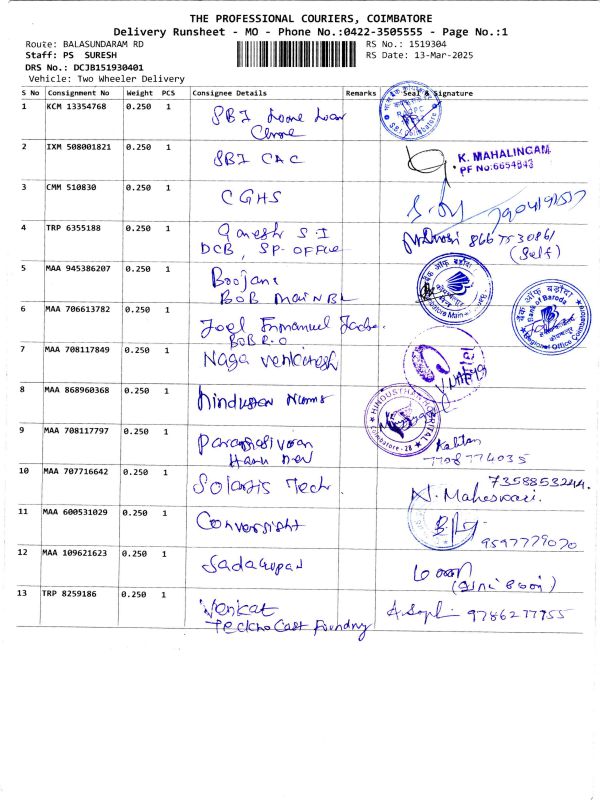 THE PROFESSIONAL COURIERS, COIMBATORE
Delivery Runsheet - MO - Phone No.:0422-3505555 - Page No.:1
Route: BALASUNDARAM RD RS No.: 1519304
Staff: PS SURESH RS Date: 13-Mar-2025
DRS No.: DCJB151930401
Vehicle: Two Wheeler Delivery
S No Consignment No Weight PCS Consignee Details Remarks Seal & Signature
1 KCM 13354768 0.250 1 SBI Home Loan
2 IXM 508001821 0.250 1 SBI CAC
K. MAHALINGAM
PF No:6654843
3 CMM 510830 0.250 1 CGHS
4 TRP 6355188 0.250 1 Ganesh S.I
DCB, SP-OFFice
(Self)
5 MAA 945386207 0.250 1 Boojani
BOB Main BL
बैंक ऑफ बड़ौदा
बैंक ऑफ बड़ौदा
Bank of Baroda
Regional Office Coimbatore
6 MAA 706613782 0.250 1 Joel Emmanuel
BOB R.O
7 MAA 708117849 0.250 1 Naga Venkatesh
8 MAA 868960368 0.250 1 hindusthan Nurms
HINDUSTHAN HOSPITAL
Coimbatore-28
9 MAA 708117797 0.250 1
7708774035
10 MAA 707716642 0.250 1 Solartis Tech.
N. Maheswari.
11 MAA 600531029 0.250 1 Conversight
9597779070
12 MAA 109621623 0.250 1 Sadagopan
13 TRP 8259186 0.250 1 Venkat 9786277955
Techno Cast Foundry